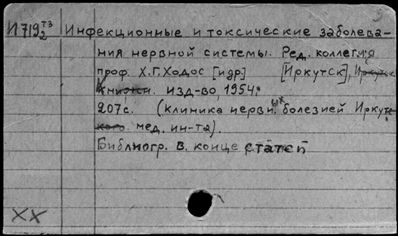 5
И 7192 ТЗ Инфекционные и токсические заболева-
ния нервной системы. Ред. коллегия
проф. Х.Г. Ходос [идр] [Иркутск], Иркутск
Книжн. изд-во, 1954.
207с. (клиника нервн. ых болезней Иркут
ского мед. ин-та).
Библиогр. в. конце статей
XX